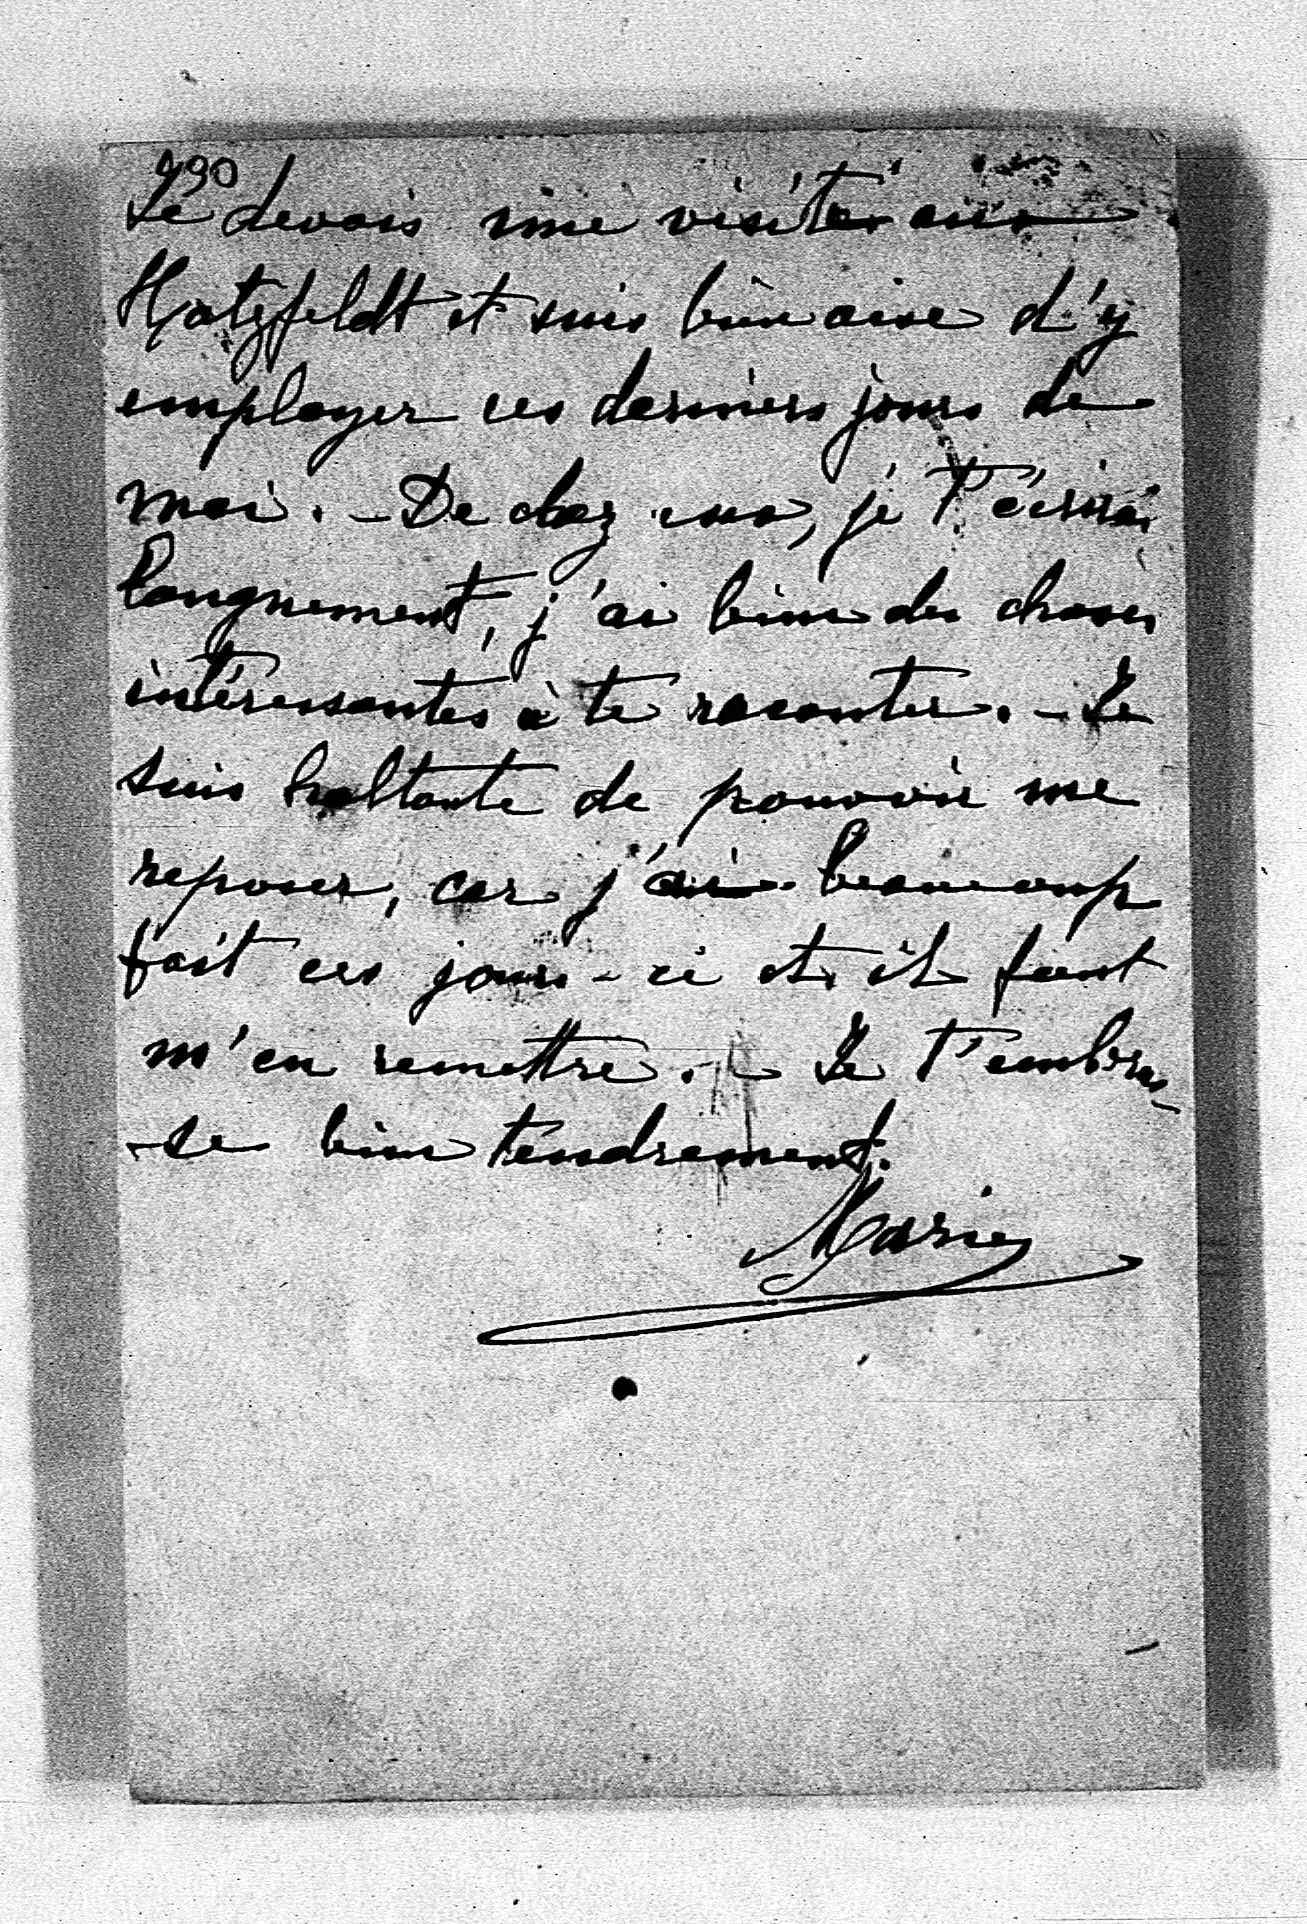 990
Je devais une visite aux
Hatzfeldt et suis bien aise d'y
employer ces derniers jours de
mai. - De chez eux, je t'écrirai
longuement, j'ai bien des choses
intéressantes à te raconter. - Je
suis haltante de pouvoir me
reposer, car j'ai beaucoup
fait ces jours-ci et il faut
m'en remettre. - Je t'embras-
-se bien tendrement.
Marie